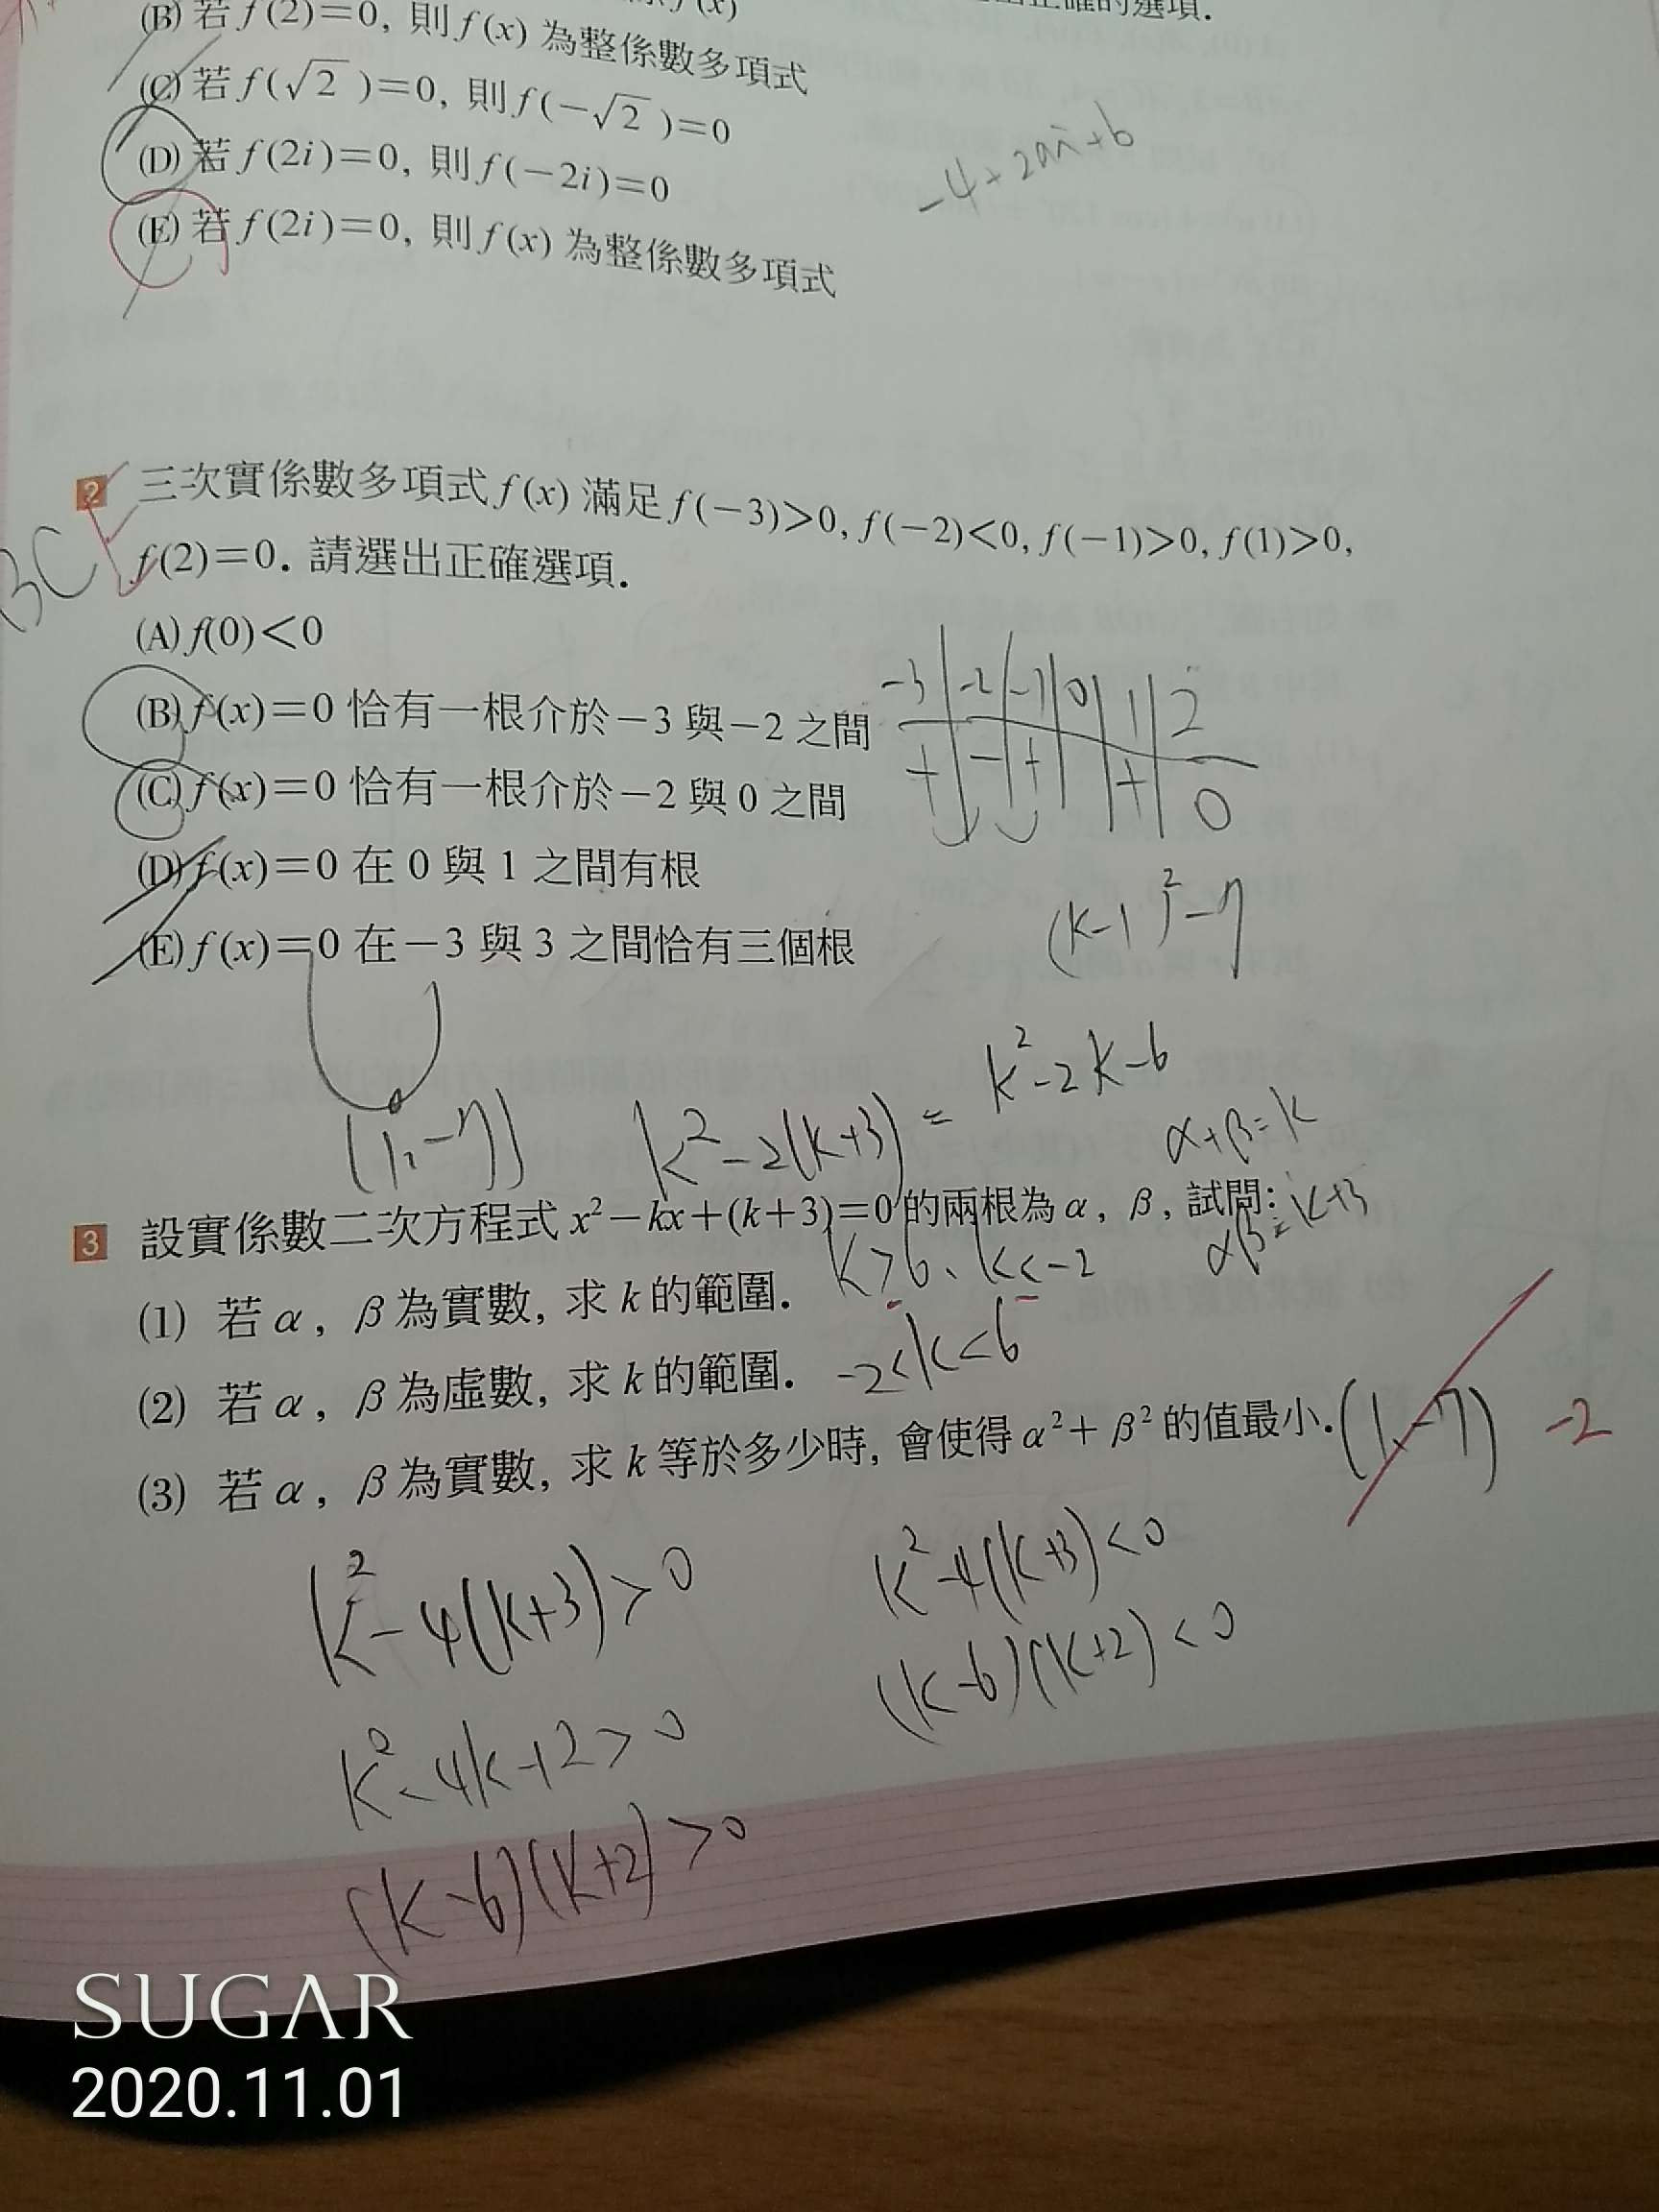 (B) 若 f(2)=0, 則 f(x) 為整係數多項式
(C) 若 f(√2)=0, 則 f(-√2)=0
(D) 若 f(2i)=0, 則 f(-2i)=0
-4+2ai+b
(E) 若 f(2i)=0, 則 f(x) 為整係數多項式
2 三次實係數多項式 f(x) 滿足 f(-3)>0, f(-2)<0, f(-1)>0, f(1)>0,
BC
f(2)=0. 請選出正確選項.
(A) f(0)<0
(B) f(x)=0 恰有一根介於-3 與-2 之間
-3 | -2 | -1 | 0 | 1 | 2
+ | - | + | | + | 0
(C) f(x)=0 恰有一根介於-2 與 0 之間
(D) f(x)=0 在 0 與 1 之間有根
(k-1)²-7
(E) f(x)=0 在-3 與 3 之間恰有三個根
(1,-7)
k²-2(k+3) = k²-2k-6
α+β=k
αβ=k+3
3 設實係數二次方程式 x²-kx+(k+3)=0 的兩根為 α, β, 試問:
(1) 若 α, β 為實數, 求 k 的範圍. k>6、k<-2
(2) 若 α, β 為虛數, 求 k 的範圍. -2<k<6
(3) 若 α, β 為實數, 求 k 等於多少時, 會使得 α²+β² 的值最小. (1,-7) -2
k²-4(k+3)>0
k²-4k-12>0
(k-6)(k+2)>0
k²-4(k+3)<0
(k-6)(k+2)<0
SUGAR
2020.11.01